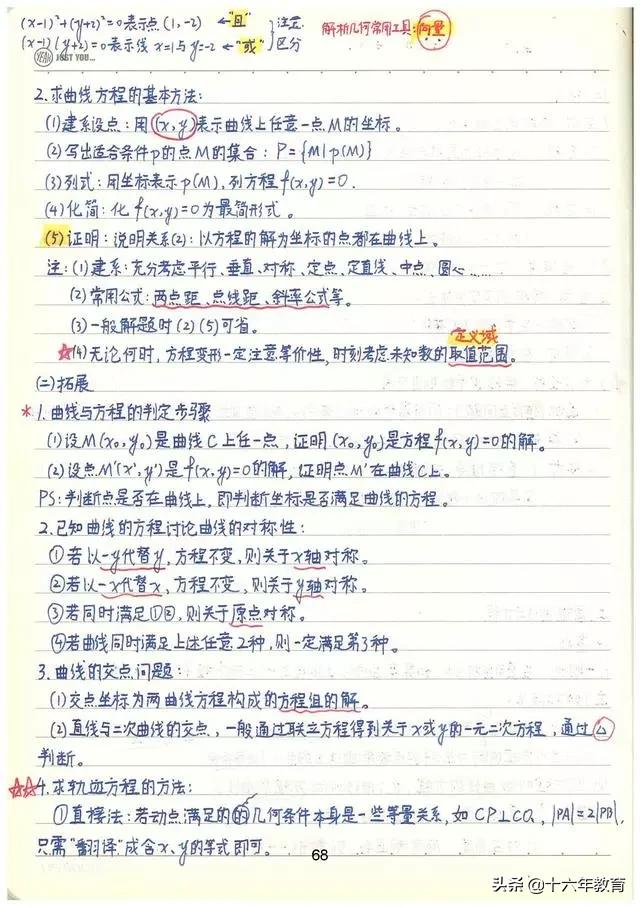 (x-1)²+(y+2)²=0表示点(1,-2) ←"且" 注意
解析几何常用工具:向量
(x-1)(y+2)=0表示线 x=1与y=-2 ←"或" 区分
YEAH JUST YOU...
2.求曲线方程的基本方法:
(1)建系设点:用(x,y)表示曲线上任意一点M的坐标。
(2)写出适合条件p的点M的集合:P={M|p(M)}
(3)列式:用坐标表示p(M),列方程f(x,y)=0.
(4)化简:化f(x,y)=0为最简形式。
(5)证明:说明关系(2):以方程的解为坐标的点都在曲线上。
注:(1)建系:充分考虑平行、垂直、对称、定点、定直线、中点、圆心……
(2)常用公式:两点距、点线距、斜率公式等。
(3)一般解题时(2)(5)可省。
定义域
☆(4)无论何时,方程变形一定注意等价性,时刻考虑未知数的取值范围。
(二)拓展
*1.曲线与方程的判定步骤
(1)设M(x₀,y₀)是曲线C上任一点,证明(x₀,y₀)是方程f(x,y)=0的解。
(2)设点M'(x',y')是f(x,y)=0的解,证明点M'在曲线C上。
PS:判断点是否在曲线上,即判断坐标是否满足曲线的方程。
2.已知曲线的方程讨论曲线的对称性:
①若以-y代替y,方程不变,则关于x轴对称。
②若以-x代替x,方程不变,则关于y轴对称。
③若同时满足①②,则关于原点对称。
④若曲线同时满足上述任意2种,则一定满足第3种。
3.曲线的交点问题:
(1)交点坐标为两曲线方程构成的方程组的解。
(2)直线与二次曲线的交点,一般通过联立方程得到关于x或y的一元二次方程,通过△
判断。
☆☆4.求轨迹方程的方法:
①直接法:若动点满足的的几何条件本身是一些等量关系,如CP⊥CQ,|PA|=2|PB|,
只需"翻译"成含x、y的等式即可。
68
头条@十六年教育